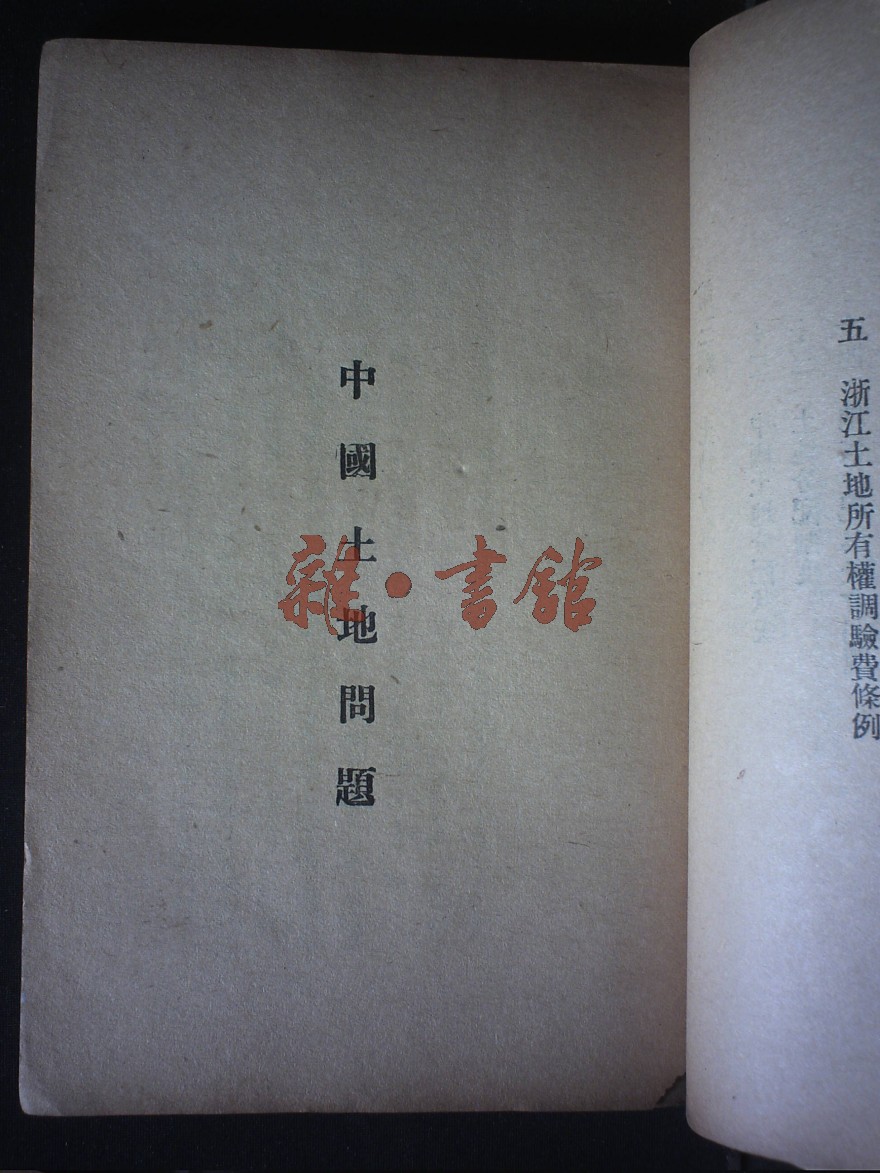 五　浙江土地所有權調驗費條例
中國土地問題
雜·書館